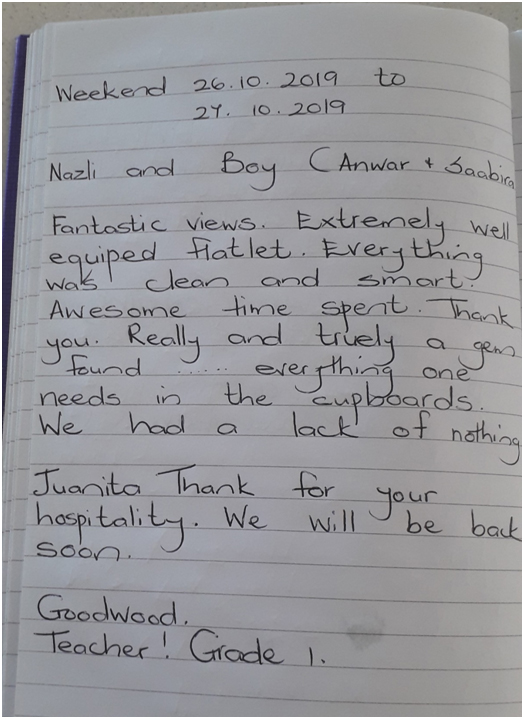 Weekend 26.10.2019 to
27.10.2019
Nazli and Boy (Anwar + Saabira
Fantastic views. Extremely well
equiped flatlet. Everything
was clean and smart.
Awesome time spent. Thank
you. Really and truely a gem
found ...... everything one
needs in the cupboards.
We had a lack of nothing
Juanita Thank for your
hospitality. We will be back
soon.
Goodwood.
Teacher! Grade 1.